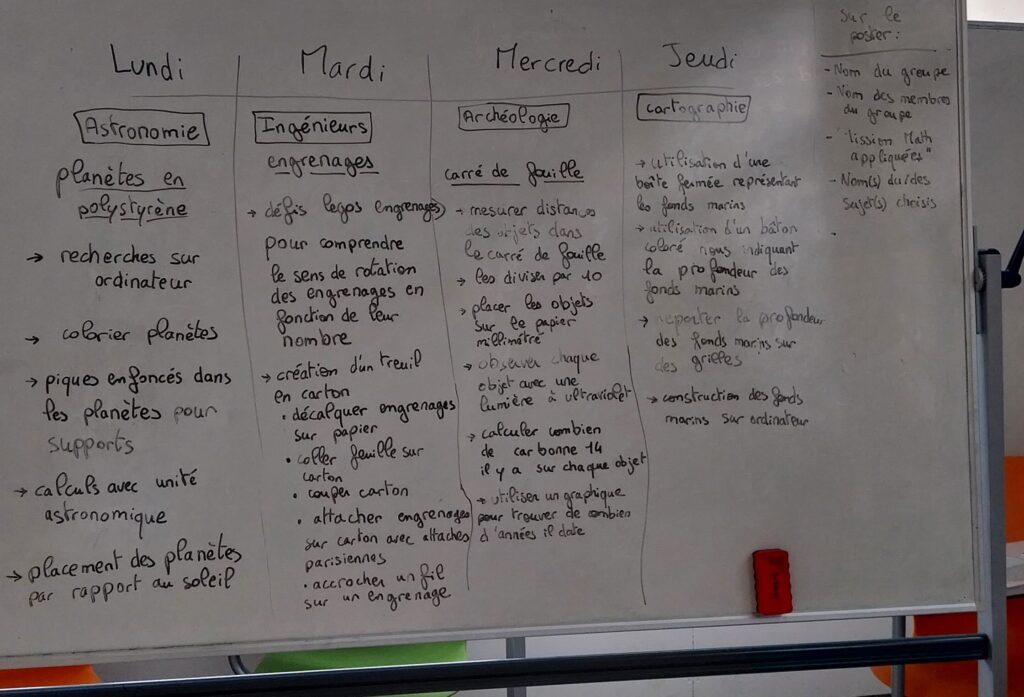 Lundi
Astronomie
planètes en
polystyrène
→ recherches sur
ordinateur
→ colorier planètes
→ piques enfoncés dans
les planètes pour
supports
→ calculs avec unité
astronomique
→ placement des planètes
par rapport au soleil
Mardi
Ingénieurs
engrenages
→ défis legos engrenages
pour comprendre
le sens de rotation
des engrenages en
fonction de leur
nombre
→ création d'un treuil
en carton
• décalquer engrenages
sur papier
• coller feuille sur
carton
• couper carton
• attacher engrenages
sur carton avec attaches
parisiennes
• accrocher un fil
sur un engrenage
Mercredi
Archéologie
carré de fouille
→ mesurer distances
des objets dans
le carré de fouille
→ les diviser par 10
→ placer les objets
sur le papier
millimétré
→ observer chaque
objet avec une
lumière à ultraviolet
→ calculer combien
de carbonne 14
il y a sur chaque objet
→ utiliser un graphique
pour trouver de combien
d'années il date
Jeudi
cartographie
→ utilisation d'une
boîte fermée représentant
les fonds marins
→ utilisation d'un bâton
coloré nous indiquant
la profondeur des
fonds marins
→ reporter la profondeur
des fonds marins sur
des grilles
→ construction des fonds
marins sur ordinateur
Sur le
poster :
- Nom du groupe
- Nom des membres
du groupe
- "Mission Math
appliquées"
- Nom(s) du/des
sujet(s) choisis
-